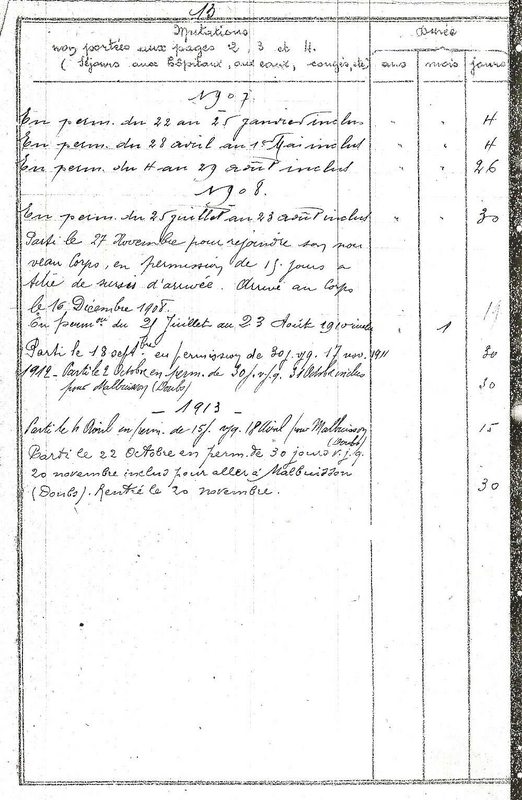 13
Mutations
non portées aux pages 2, 3 et 4.
(Séjours aux hôpitaux, aux eaux, congés, etc)
Durée
ans mois jours
1907.
En perm. du 22 au 25 janvier inclus " " 4
En perm. du 28 avril au 1er Mai inclus " " 4
En perm. du 4 au 29 août inclus " " 26
1908.
En perm. du 25 juillet au 23 août inclus " " 30
Parti le 27 Novembre pour rejoindre son nou
veau Corps, en permission de 15 jours a
titre de sursis d'arrivée. Arrivé au Corps
le 16 Décembre 1908.
En permon du 21 Juillet au 23 Août 1910 inclus " 1
Parti le 18 septbre en permission de 30 j. v.g. 17 nov. 1911 30
1912 - Parti le 2 Octobre en perm. de 30 j. v.j.g. 31 Octobre inclus
pour Malbuisson (Doubs) 30
- 1913 -
Parti le 4 Avril en perm. de 15 j. v.j.g. 18 Avril pour Malbuisson 15
(Doubs)
Parti le 22 Octobre en perm. de 30 jours v.j.q.
20 novembre inclus pour aller à Malbuisson
(Doubs). Rentré le 20 novembre. 30